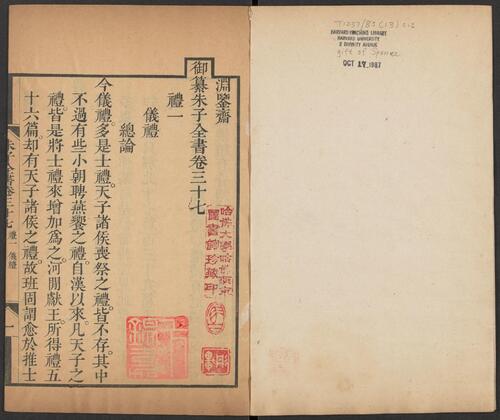 淵鑒齋
御纂朱子全書卷三十七
禮一
儀禮
總論
今儀禮多是士禮。天子諸侯喪祭之禮皆不存。其中
不過有些小朝聘燕饗之禮。自漢以來凡天子之
禮。皆是將士禮來增加為之。河間獻王所得禮五
十六篇。却有天子諸侯之禮。故班固謂愈於推士
朱子全書卷三十七
禮一 儀禮
一
HARVARD-YENCHING LIBRARY
HARVARD UNIVERSITY
2 DIVINITY AVENUE
gift of
OCT 17 1987
哈佛大學哈佛燕京
圖書館珍藏印